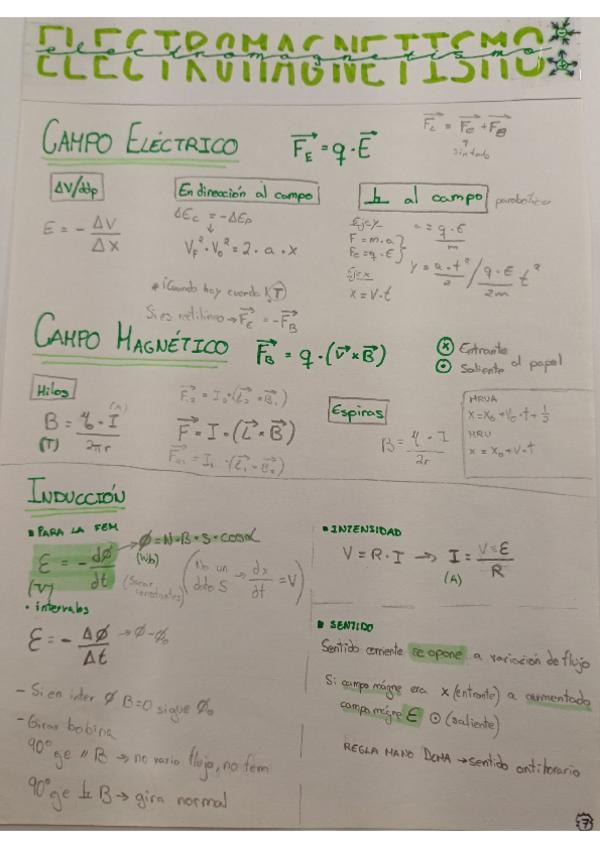 ELECTROMAGNETISMO
electromagnetismo
CAMPO ELÉCTRICO
F_E = q · E
F_L = F_E + F_B
ΔV/ddp
E = - ΔV/Δx
En dirección al campo
ΔEc = -ΔEp
↓
V_F² · V_0² = 2 · a · x
⊥ al campo
Eje y
F = m · a
Fe = q · E
a = q · E / m
y = a · t² / 2
q · E / 2m t²
Eje x
x = v · t
* ¡Cuando hay cuerda
Si es rectilíneo → F_E = -F_B
CAMPO MAGNÉTICO
F_B = q · (v × B)
⊗ Entrante
⊙ Saliente al papel
Hilos
B = η · I / 2πr
(A)
(T)
F = I · (L × B)
Espiras
B = η · I / 2r
MRUA
x = x0 + v0 · t + 1/2
MRU
x = x0 + v · t
INDUCCIÓN
PARA LA FEM
ε = - dϕ/dt
(V)
→ ϕ = N · B · S · cosα
(Wb)
(Sacar constantes)
(No un dato S → dx/dt = V)
· intervalos
ε = - Δϕ/Δt → ϕ - ϕ0
- Si en inter ϕ B=0 sigue ϕ0
- Girar bobina
90° ge // B → no varia flujo, no fem
90° ge ⊥ B → gira normal
INTENSIDAD
V = R · I → I = V=ε / R
(A)
SENTIDO
Sentido corriente se opone a variación de flujo
Si campo magne era x (entrante) a aumentado
campo magne ε ⊙ (saliente)
REGLA MANO → sentido antihorario
7